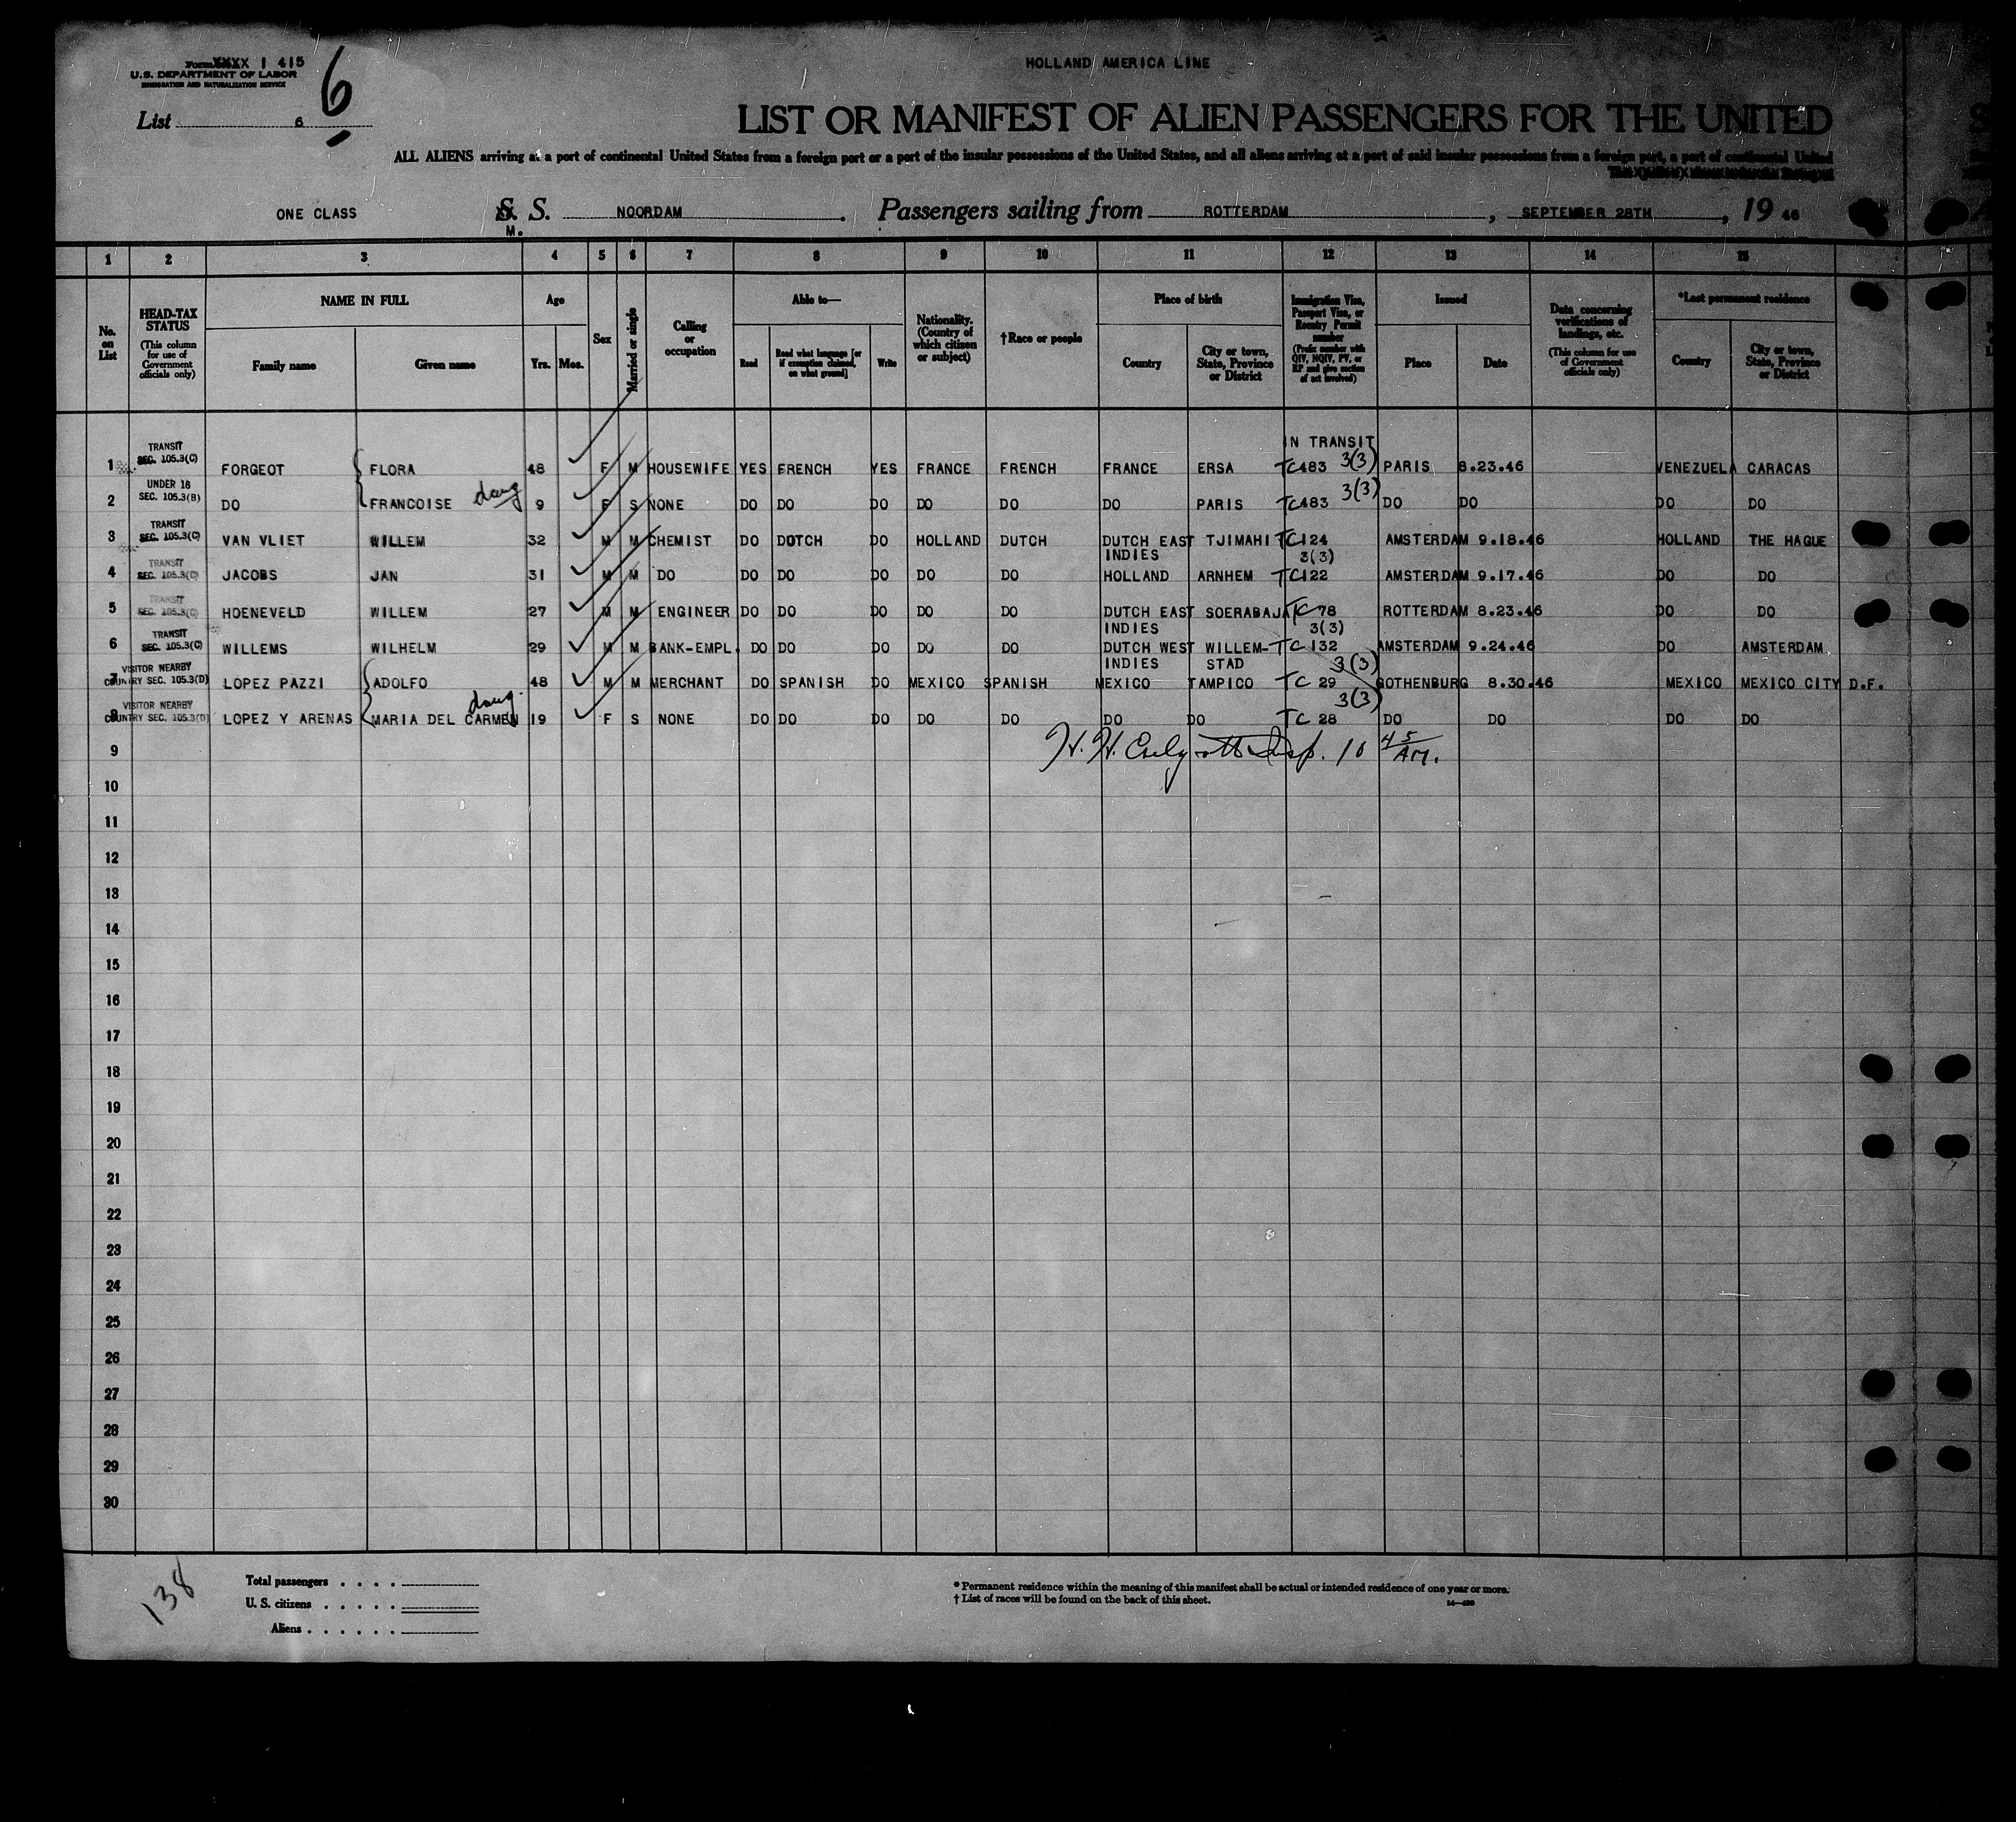 Form XXXX I 415
U.S. DEPARTMENT OF LABOR
IMMIGRATION AND NATURALIZATION SERVICE
List 6
6
HOLLAND AMERICA LINE
LIST OR MANIFEST OF ALIEN PASSENGERS FOR THE UNITED
ALL ALIENS arriving at a port of continental United States from a foreign port or a port of the insular possessions of the United States, and all aliens arriving at a port of said insular possessions from a foreign port, a port of continental United
ONE CLASS S. S. NOORDAM. Passengers sailing from ROTTERDAM, SEPTEMBER 28TH, 19 46
M.
1 2 3 4 5 6 7 8 9 10 11 12 13 14 15
No. on List
HEAD-TAX STATUS (This column for use of Government officials only)
NAME IN FULL Family name Given name
Age Yrs. Mos.
Sex
Married or single
Calling or occupation
Able to— Read Read what language [or if exemption claimed, on what ground] Write
Nationality. (Country of which citizen or subject)
†Race or people
Place of birth Country City or town, State, Province or District
Immigration Visa, Passport Visa, or Reentry Permit number (Prefix number with QIV, NQIV, PV, or RP and give section of act involved)
Issued Place Date
Data concerning verifications of landings, etc. (This column for use of Government officials only)
*Last permanent residence Country City or town, State, Province or District
IN TRANSIT
1 TRANSIT SEC. 105.3(C) FORGEOT FLORA 48 F M HOUSEWIFE YES FRENCH YES FRANCE FRENCH FRANCE ERSA TC483 3(3) PARIS 8.23.46 VENEZUELA CARACAS
2 UNDER 18 SEC. 105.3(B) DO FRANCOISE daug 9 F S NONE DO DO DO DO DO DO PARIS TC483 3(3) DO DO DO DO
3 TRANSIT SEC. 105.3(C) VAN VLIET WILLEM 32 M M CHEMIST DO DUTCH DO HOLLAND DUTCH DUTCH EAST INDIES TJIMAHI TC124 3(3) AMSTERDAM 9.18.46 HOLLAND THE HAGUE
4 TRANSIT SEC. 105.3(C) JACOBS JAN 31 M M DO DO DO DO DO DO HOLLAND ARNHEM TC122 AMSTERDAM 9.17.46 DO DO
5 TRANSIT SEC. 105.3(C) HOENEVELD WILLEM 27 M M ENGINEER DO DO DO DO DO DUTCH EAST INDIES SOERABAJA TC 78 3(3) ROTTERDAM 8.23.46 DO DO
6 TRANSIT SEC. 105.3(C) WILLEMS WILHELM 29 M M BANK-EMPL. DO DO DO DO DO DUTCH WEST INDIES WILLEM-STAD TC 132 AMSTERDAM 9.24.46 DO AMSTERDAM
7 VISITOR NEARBY COUNTRY SEC. 105.3(D) LOPEZ PAZZI ADOLFO 48 M M MERCHANT DO SPANISH DO MEXICO SPANISH MEXICO TAMPICO TC 29 3(3) GOTHENBURG 8.30.46 MEXICO MEXICO CITY D.F.
8 VISITOR NEARBY COUNTRY SEC. 105.3(D) LOPEZ Y ARENAS MARIA DEL CARMEN daug. 19 F S NONE DO DO DO DO DO DO DO TC 28 3(3) DO DO DO DO
9 H. H. Insp. 10 45 AM.
10
11
12
13
14
15
16
17
18
19
20
21
22
23
24
25
26
27
28
29
30
138
Total passengers . . . .
U. S. citizens . . . . .
Aliens . . . . . .
* Permanent residence within the meaning of this manifest shall be actual or intended residence of one year or more.
† List of races will be found on the back of this sheet.